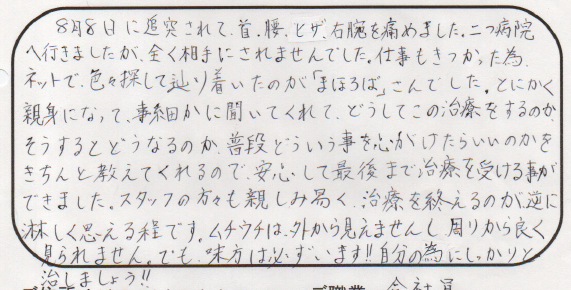 8月8日に追突されて、首、腰、ヒザ、右腕を痛めました。二つ病院
へ行きましたが、全く相手にされませんでした。仕事もきつかった為、
ネットで、色々探して辿り着いたのが「まほろば」さんでした。とにかく
親身になって、事細かに聞いてくれて、どうしてこの治療をするのか、
そうするとどうなるのか、普段どういう事を心がけたらいいのかを
きちんと教えてくれるので、安心して最後まで治療を受ける事が
できました。スタッフの方々も親しみ易く、治療を終えるのが逆に
淋しく思える程です。ムチウチは、外から見えませんし、周りから良く
見られません。でも、味方は必ずいます!!自分の為にしっかりと
治しましょう!!
ご職業 会社員